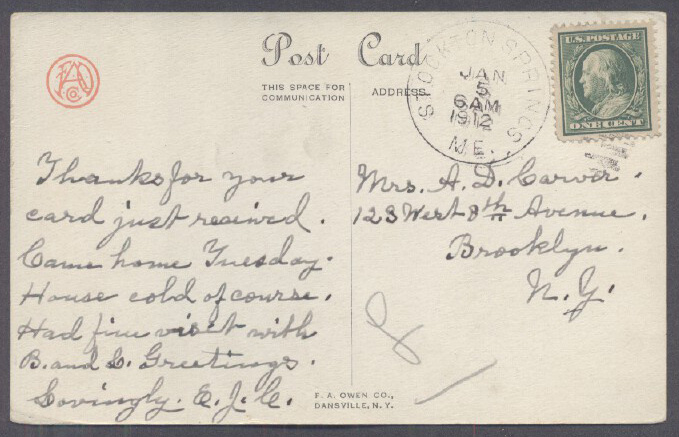 Post Card
THIS SPACE FOR
COMMUNICATION
ADDRESS
STOCKTON SPRINGS
JAN
5
6 AM
1912
ME.
U.S. POSTAGE
ONE CENT
Thanks for your
card just received.
Came home Tuesday.
House cold of course.
Had fine visit with
B. and L. Greetings.
Lovingly. E. J. C.
Mrs. A. D. Carver.
123 West 8th Avenue.
Brooklyn.
N. Y.
F. A. OWEN CO.,
DANSVILLE, N. Y.